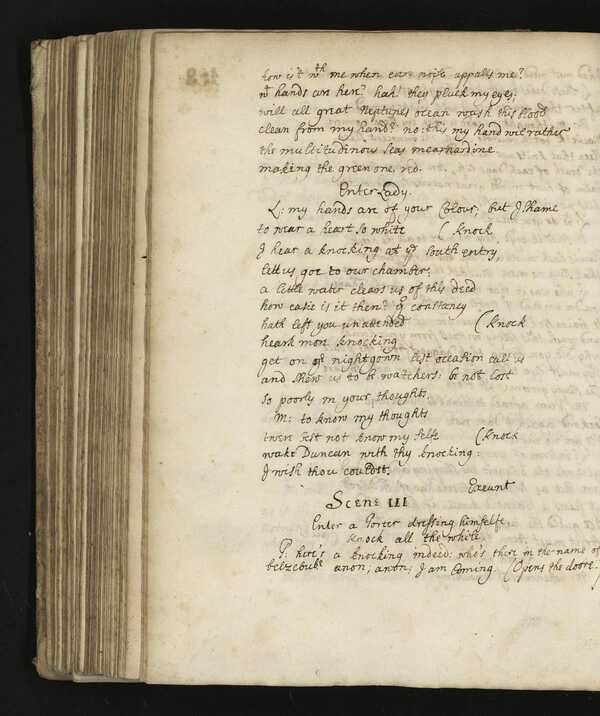 how is't wth me when euery noise appalls me?
wt hands are here? hah! they pluck my eyes:
will all great Neptunes ocean wash this blood
clean from my hand? no: this my hand wil rather
the multitudinous seas incarnardine
making the green one, red.
Enter Lady.
L: my hands are of your Colour, but I shame
to wear a heart so white ( knock
I hear a knocking at ye south entry,
lett us goe to our chamber,
a little water clears us of this deed
how easie is it then? yr constancy
hath left you unattended (knock
heark more knocking
get on yr nightgown lest occasion call us
and show us to be watchers: be not lost
so poorly in your thoughts.
M: to know my thoughts
twere best not know my selfe (knock
wake Duncan with thy knocking:
I wish thou couldst.
Exeunt
SCENE III
Enter a Porter dressing himselfe,
knock all the while
P: here's a knocking indeed: who's there in the name of
belzebub? anon, anon, I am coming. (Opens the doore.